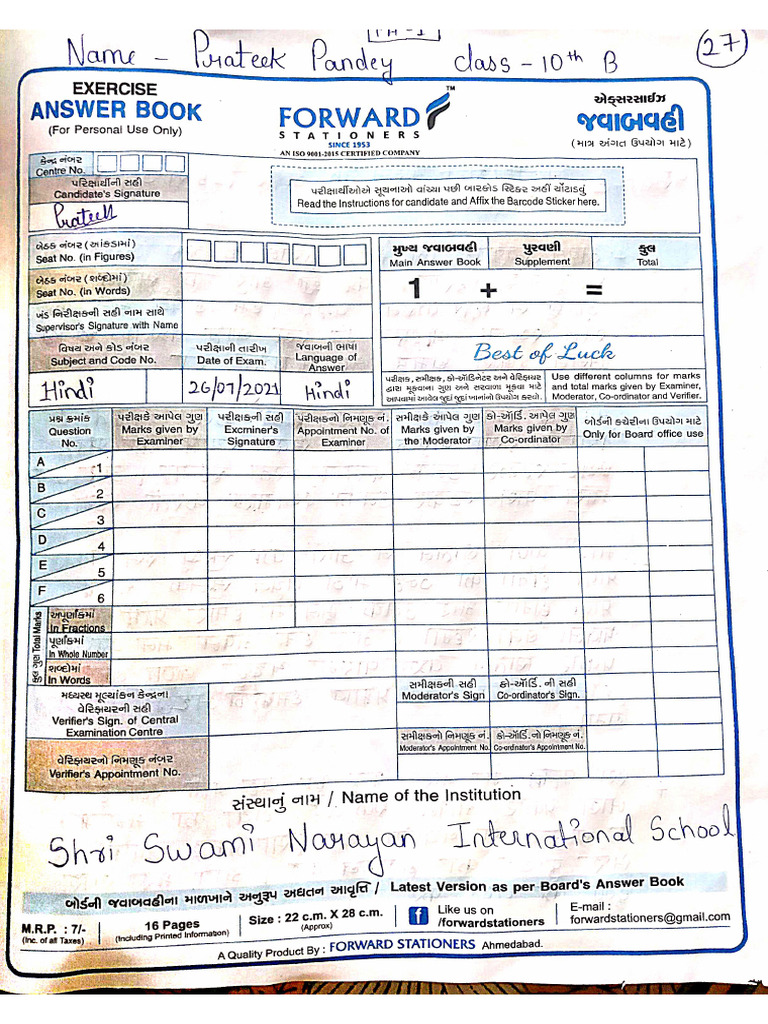 PA-1
Name - Prateek Pandey class - 10th B
27
EXERCISE
ANSWER BOOK
(For Personal Use Only)
FORWARD
STATIONERS
SINCE 1953
AN ISO 9001-2015 CERTIFIED COMPANY
TM
એક્સરસાઈઝ
જવાબવહી
(માત્ર અંગત ઉપયોગ માટે)
કેન્દ્ર નંબર
Centre No.
પરિક્ષાર્થીની સહી
Candidate's Signature
Prateek
પરીક્ષાર્થીઓએ સૂચનાઓ વાંચ્યા પછી બારકોડ સ્ટિકર અહીં ચોંટાડવું
Read the Instructions for candidate and Affix the Barcode Sticker here.
બેઠક નંબર (આંકડામાં)
Seat No. (in Figures)
બેઠક નંબર (શબ્દોમાં)
Seat No. (in Words)
ખંડ નિરીક્ષકની સહી નામ સાથે
Supervisor's Signature with Name
મુખ્ય જવાબવહી પુરવણી કુલ
Main Answer Book Supplement Total
1 + =
Best of Luck
વિષય અને કોડ નંબર પરીક્ષાની તારીખ જવાબની ભાષા
Subject and Code No. Date of Exam. Language of Answer
Hindi 26/07/2021 Hindi
પરીક્ષક, સમીક્ષક, કો-ઓર્ડિનેટર અને વેરિફાયર
દ્વારા મૂકવાના ગુણ અને સરવાળા મૂકવા માટે
આપવામાં આવેલ જુદાં જુદાં ખાનાંનો ઉપયોગ કરવો.
Use different columns for marks
and total marks given by Examiner,
Moderator, Co-ordinator and Verifier.
પ્રશ્ન ક્રમાંક પરીક્ષકે આપેલ ગુણ પરીક્ષકની સહી પરીક્ષકનો નિમણૂક નં. સમીક્ષકે આપેલ ગુણ કો-ઓર્ડિ. આપેલ ગુણ બોર્ડની કચેરીના ઉપયોગ માટે
Question No. Marks given by Examiner Excminer's Signature Appointment No. of Examiner Marks given by the Moderator Marks given by Co-ordinator Only for Board office use
A 1
B 2
C 3
D 4
E 5
F 6
કુલ ગુણ Total Marks
અપૂર્ણાંકમાં
In Fractions
પૂર્ણાંકમાં
In Whole Number
શબ્દોમાં
In Words
સમીક્ષકની સહી કો-ઓર્ડિ. ની સહી
Moderator's Sign Co-ordinator's Sign.
મધ્યસ્થ મૂલ્યાંકન કેન્દ્રના
વેરિફાયરની સહી
Verifier's Sign. of Central
Examination Centre
સમીક્ષકનો નિમણૂક નં. કો-ઓર્ડિ.નો નિમણૂક નં.
Moderator's Appointment No. Co-ordinator's Appointment No.
વેરિફાયરનો નિમણૂક નંબર
Verifier's Appointment No.
સંસ્થાનું નામ / Name of the Institution
Shri Swami Narayan International School
બોર્ડની જવાબવહીના માળખાને અનુરૂપ અદ્યતન આવૃત્તિ / Latest Version as per Board's Answer Book
M.R.P. : 7/-
(Inc. of all Taxes)
16 Pages
(Including Printed Information)
Size : 22 c.m. X 28 c.m.
(Approx)
f
Like us on
/forwardstationers
E-mail :
forwardstationers@gmail.com
A Quality Product By : FORWARD STATIONERS Ahmedabad.